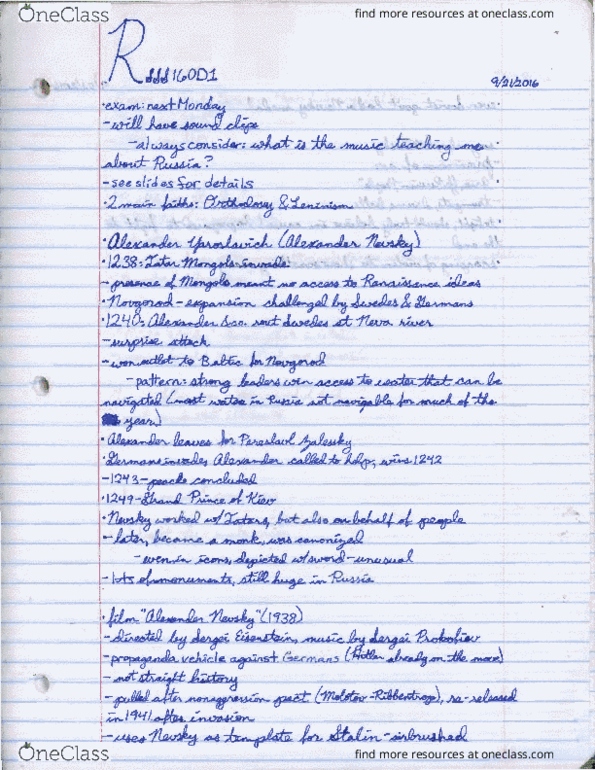 OneClass
find more resources at oneclass.com
R 160D1
9/21/2016
·exam: next Monday
-will have sound clips
-always consider: what is the music teaching me
about Russia?
-see slides for details
·2 main faiths: Orthodoxy & Leninism
·Alexander Yaroslavich (Alexander Nevsky)
·1238: Tatar Mongols invade
-presence of Mongols meant no access to Renaissance ideas
·Novgorod-expansion challenged by Swedes & Germans
·1240: Alexander &co. rout Swedes at Neva river
-surprise attack
-won outlet to Baltic for Novgorod
-pattern: strong leaders win access to water that can be
navigated (most water in Russia not navigable for much of the
year)
·Alexander leaves for Pereslavl Zalessky
·Germans invade, Alexander called to help, wins 1242
-1243-peace concluded
·1249-Grand Prince of Kiev
·Nevsky worked w/Tatars, but also on behalf of people
-later, became a monk, was canonized
-even in icons, depicted w/sword-unusual
-lots of monuments, still huge in Russia
·film "Alexander Nevsky" (1938)
-directed by Sergei Eisenstein, music by Sergei Prokofiev
-propaganda vehicle against Germans (Hitler already on the move)
-not straight history
-pulled after nonaggression pact (Molotov-Ribbentrop), re-released
in 1941 after invasion
-uses Nevsky as template for Stalin-airbrushed
OneClass
find more resources at oneclass.com